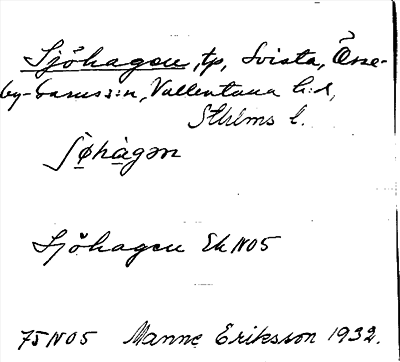 Sjöhagen, tp, Svista, Össe-
by-Garns s:n, Vallentuna h:d,
Sthlms l.
Sjöhagen Ek NO5
75 NO5 Manne Eriksson 1932.